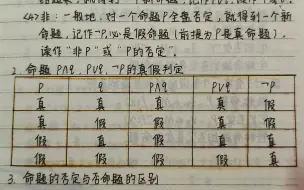 <4>非:一般地,对一个命题P全盘否定,就得到一个新
命题,记作¬P,是假命题(前提为P是真命题).
读作"非P"或"P的否定".
2.命题P∧q,P∨q,¬P的真假判定
P q P∧q P∨q ¬P
真 真 真 真 假
真 假 假 真 假
假 真 假 真 真
假 假 假 假 真
3.命题的否定与否命题的区别